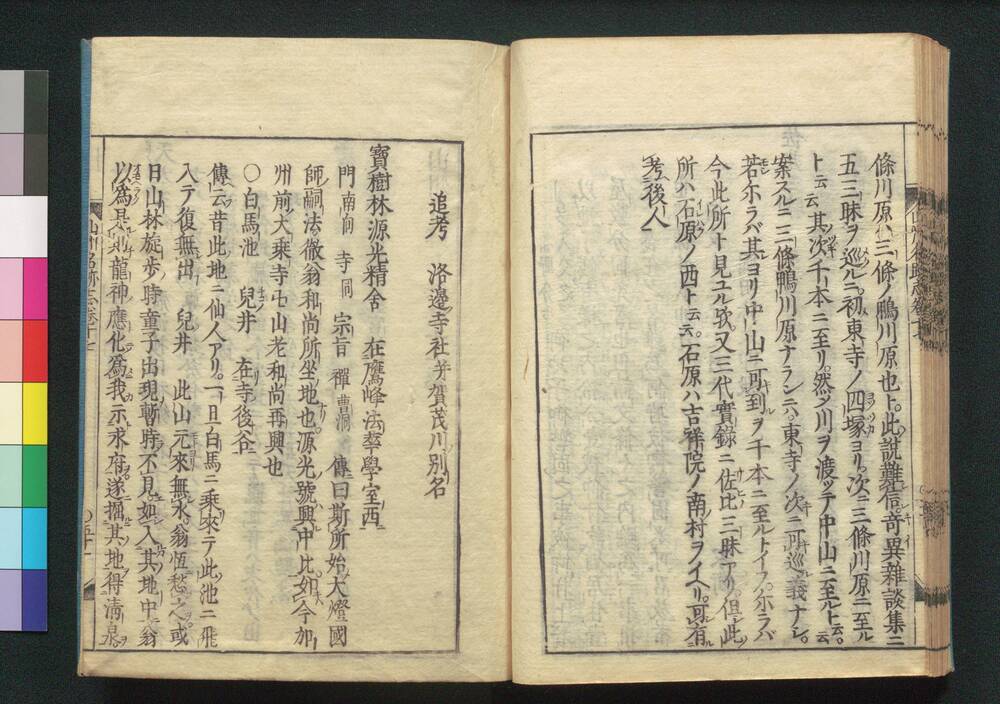 條川原ハ三條ノ鴨川原也ト。此説難信竒異雜談集ニ
五三昧ヲ巡ルニ。初東寺ノ四塚ヨリ。次三條川原ニ至ル
ト云云其次千本ニ至リ。然〆川ヲ渡ツテ中山ニ至ルト云云
案スルニ三條鴨川原ナランニハ。東寺ノ次ニ可巡義ナシ。
若尓ラバ其ヨリ中山ニ可到ヲ千本ニ至ルトイフ。尓ラバ
今此所ト見ユル欤又三代實錄ニ佐比三昧アリ。但此
所ハ石原ノ西ト云云。石原ハ吉祥院ノ南村ヲイヘリ。可有
考後人
追考 洛邊寺社并賀茂川別名
寳樹林源光精舍 在鷹峰法華學室西
門南向 寺同 宗旨禪曹洞 傳曰斯所始大燈國
師嗣法徹翁和尚所坐地也。源光號興中比如今加
州前大乗寺卍山老和尚再興也
〇白馬池 兒井 在寺後谷
傳云昔此地ニ仙人アリ。一旦白馬ニ乗來テ此池ニ飛
入テ復無出 兒井 此山元來無水。翁恆愁之或
日山林旋歩ノ時童子出現暫時不見如入其地中翁
以為是則龍神應化為我示求府。遂掘其地得清泉。